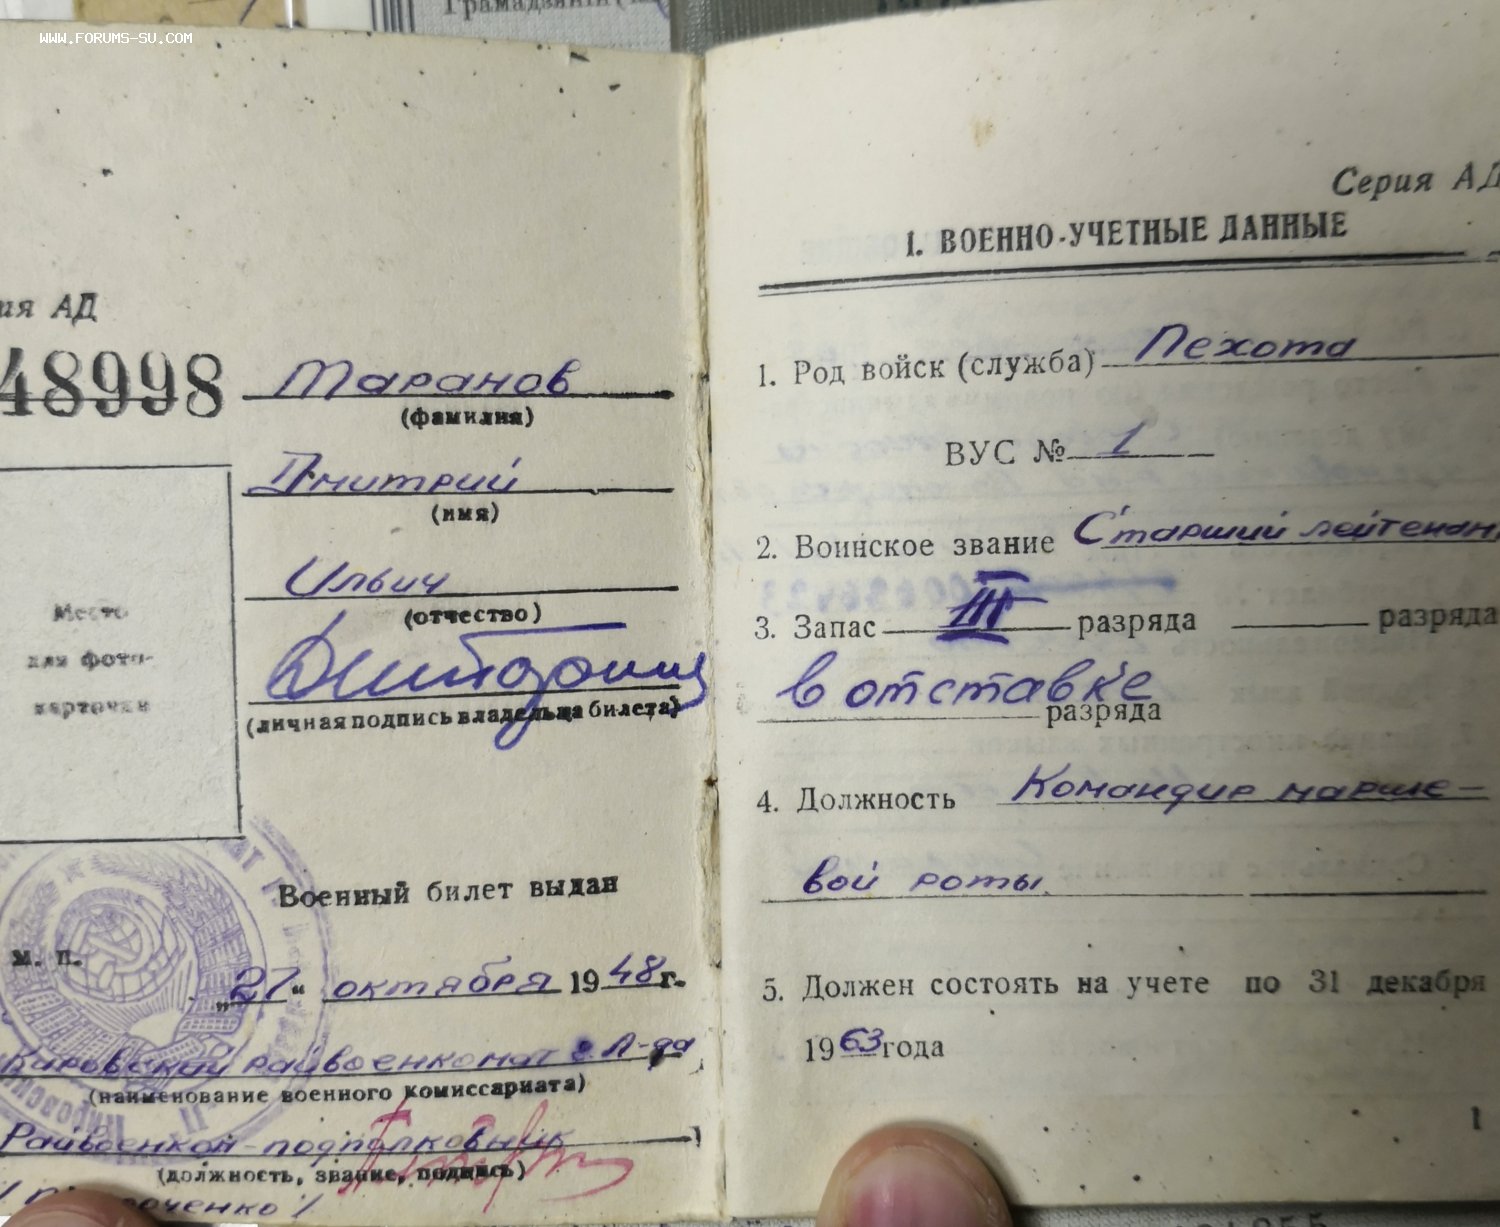 WWW.FORUMS-SU.COM
ия АД
48998
Таранов
(фамилия)
Дмитрий
(имя)
Ильич
(отчество)
(личная подпись владельца билета)
Место
для фото-
карточки
Военный билет выдан
м. п.
„27“ октября 1948 г.
Кировский райвоенкомат г. Л-да
(наименование военного комиссариата)
Райвоенком-подполковник
(должность, звание, подпись)
Серия АД
1. ВОЕННО-УЧЕТНЫЕ ДАННЫЕ
1. Род войск (служба) Пехота
ВУС № 1
2. Воинское звание Старший лейтенан
3. Запас III разряда разряда
в отставке
разряда
4. Должность Командир марше-
вой роты.
5. Должен состоять на учете по 31 декабря
1963 года
1